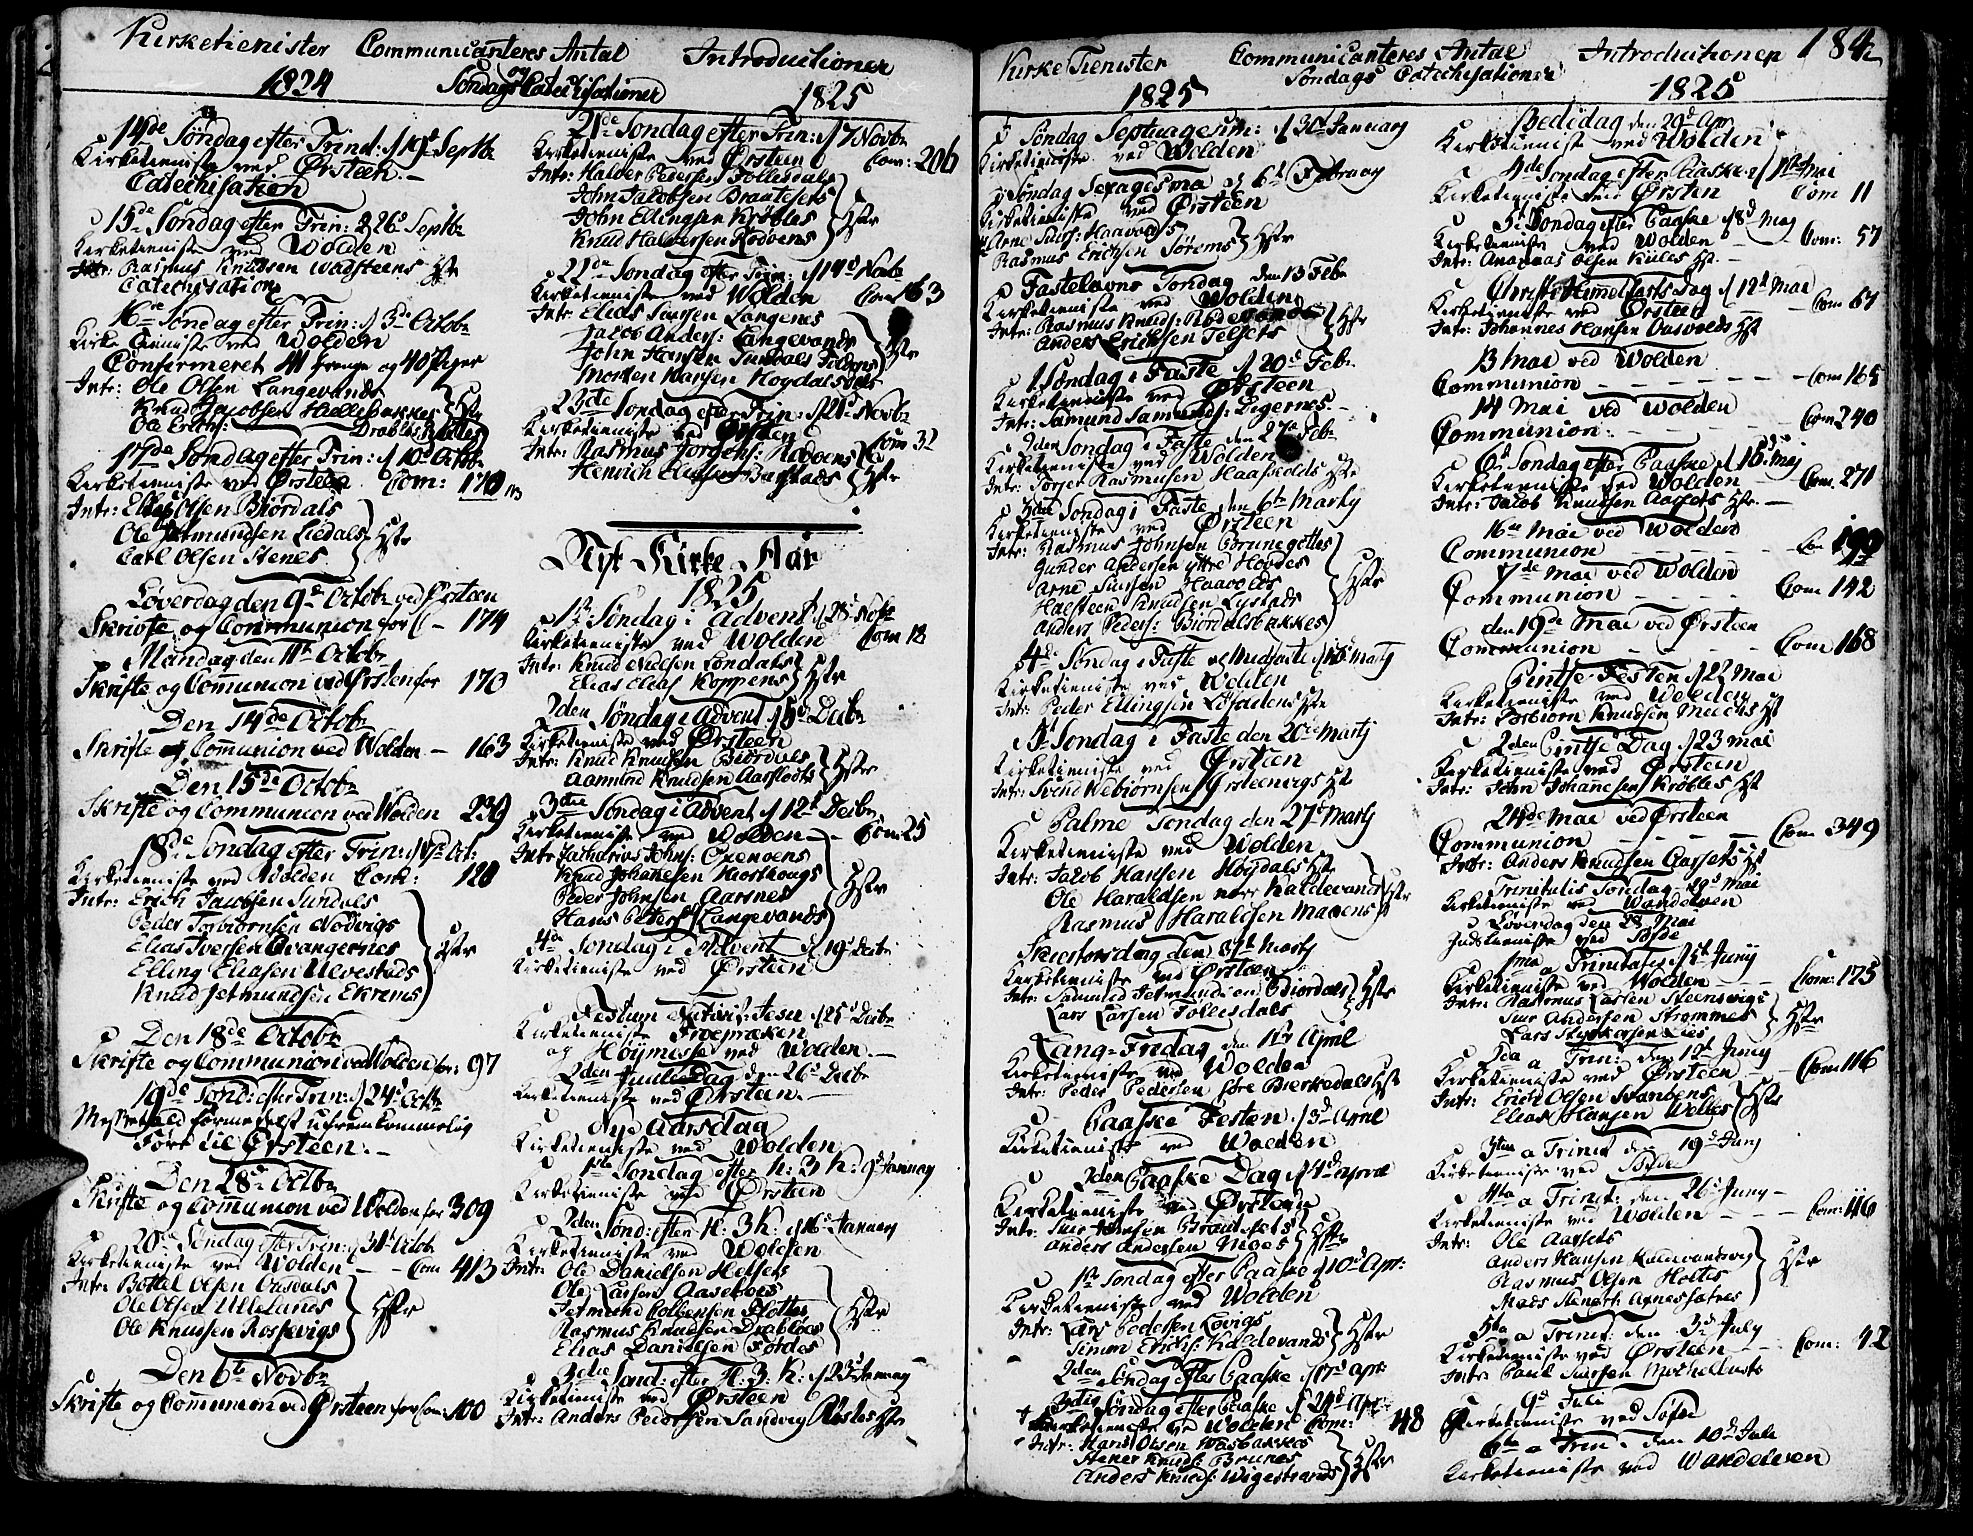 Kirketienister Communicanteres Antal Introductioner
1824 og Søndags Catechisationer 1825
14de Søndag efter Trinit: d 19de Septbr
Kirketieniste ved Ørsteen.
Catechisation
15de Søndag efter Trin: d 26d Septbr
Kirketieniste ved Wolden
Intr: Rasmus Knudsen Wadsteens Hstr
Catechisation
16de Søndag efter Trin: d 3de Octobr
Kirke tieniste ved Wolden
Confirmeret 41 Drenge og 40 Piger
Intr: Ole Olsen Langevands
Knud Jacobsen Hiellebakkes Hstr
Ole Erichs:
17de Søndag efter Trin: d 10d Octobr
Kirketieniste ved Ørsteen Com: 170
Intr: Olsen Biørdals
Ole Jetmundsen Liedals Hstr
Carl Olsen Stenes
Løverdag den 9de Octobr ved Ørsteen
Skrifte og Communion for 174
Mandag den 11te Octobr
Skrifte og Communion ved Ørsten for 170
Den 14de Octobr
Skrifte og Communion ved Wolden 163
Den 15de Octobr
Skrifte og Communion ved Wolden 239
18de Søndag efter Trin: d 17de Oct:
Kirketieniste ved Wolden Com: 120
Intr: Erich Jacobsen Sundals
Peder Torbiørnsen Nodvigs
Elias Iversen Qvangernes Hstr
Elling Eliasen Ulvestads
Knud Jetmundsen Ekrems
Den 18de Octobr
Skrifte og Communion ved Wolden for: 97
19de Sønd: efter Trin: d 24d Octbr
Messefald formedelst ufremkommelig
Føre til Ørsteen.
Den 28d Octbr
Skrifte og Communion ved Wolden for 309
20de Søndag efter Trin: d 31d Octob
Kirketieniste ved Wolden Com 413
Intr: Bottel Olsen Osdals
Ole Olsen Ullelands Hstr
Ole Knudsen Rossevigs
Den 6te Novbr
Skrifte og Communion ved Ørsteen for Com: 100
21de Søndag efter Trin: d 7 Novbr
Kirketieniste ved Ørsteen Com: 206
Intr: Halder Pedersen Follesdals
John Jacobsen Brautesets
John Ellingsen Krøbles Hstr
Knud Halversen Rødvens
22de Søndag efter Trin: d 14d Novbr
Kirketieniste ved Wolden Com 163
Intr: Elias Siursen Langenes
Jacob Anders: Langevands
John Hansen Sundals Hstr
Morten Hansen Høydals
23de Søndag efter Trin: d 21d Novbr
Kirketieniste ved Ørsten Com 32
Intr: Rasmus Jørgens: Rødvens
Henrich Bastads Hstr
Nyt Kirke Aar
1825
1te Søndag i Advent d 28d Novbr
Kirketieniste ved Wolden Com 18
Intr: Knud Nielsen Løndals
Elias Elias Koppens Hstr
2den Søndag i Advent d 5d Decbr
Kirketieniste ved Ørsteen
Intr: Knud Knudsen Biørdals
Aamund Knudsen Aarflodts Hstr
3die Søndag i Advent d 12d Decbr
Kirketieniste ved Wolden Com 25
Intr: Zacharias Johns:
Knud Johanesen
Peder Johnsen Aarsnes Hstr
Hans Peters: Langevands
4de Søndag i Advent d 19d Decbr
Kirketieniste ved Ørsteen
Festum Nativit: Jesu d 25d Decbr
Kirketieniste Froepræken
og Høymesse ved Wolden.
2den Juuledag den 26d Decbr
Kirketieniste ved Ørsteen.
Nyd Aarsdag
Kirketieniste ved Wolden
1ste Søndag efter H: 3 K: 9d January
Kirketieniste ved Ørsteen
2den Sønd: efter H: 3 K: d 16d January
Kirketieniste ved Wolden
Intr: Ole Danielsen Helsets
Ole Larsen Aasebøes
Jetmund Colbensen Flottes Hstr
Rasmus Knudsen Drabløes
Elias Danielsen Førdes
3die Sønd: efter H: 3 K: d 23d January
Kirketieniste ved Ørsteen
Intr: Anders Pedersen Sandvig Røstes Hstr
Kirke Tienister Communicanteres Antal Introductionen 184
1825 Søndags Catechisationer 1825
Søndag Septuagesim: d 30d January
Kirketieniste ved Wolden
Søndag Sexagesima d 6te February
Kirketieniste ved Ørsteen
Arne Siurs: Haavolds
Rasmus Erichsen Sørems Hstr
Fastelavns Søndag den 13 Febr
Kirketieniste ved Wolden
Intr: Rasmus Knuds:
Anders Erichsen Hstr
1 Søndag i Faste d 20d Febr.
Kirketieniste ved Ørsteen
Intr: Samund Samunds: Digernes.
2den Søndag i Faste den 27d Febr
Kirketieniste ved Wolden
Intr: Torger Rasmusen Hstr
3die Søndag i Faste den 6te Marty
Kirketieniste ved Ørsteen
Intr: Rasmus Johnsen Brunegottes
Gunder Andersen yttre Hovdes
Arne Siursen Haavolds Hstr
Halsteen Knudsen Lystads
Anders Peders: Biørdalsbakkes
4de Søndag i Faste Midfaste d 13d Marty
Kirketieniste ved Wolden
Intr: Peder Ellingsen Hstr
5te Søndag i Faste den 20de Marty
Kirketieniste ved Ørsteen
Intr: Svend Webiørnsen Ørsteenvigs Hst
Palme Søndag den 27d Marty
Kirketieniste ved Wolden
Intr: Jacob Hansen Høydals Hstr
Ole Haraldsen nedre Kaldevands Hstr
Rasmus Haraldsen
Skiertorsdag den 31te Marty
Kirketieniste ved Ørsteen
Intr: Samund Jetmundsen Biørdals Hstr
Lars Larsen Follesdals
Lang-Fredag den 1te April
Kirketieniste ved Wolden
Intr: Peder Pedersen Bierkedals Hstr
Paaske Festen d 3d April
Kirketieniste ved Wolden
2den Paaske Dag d 4d April
Kirketieniste ved Ørsteen
Intr: Siur Brautesets
Anders Andersen Moes Hstr
1te Søndag efter Paaske d 10d Apr:
Kirketieniste ved Wolden
Intr: Lars Pedersen Løvigs
Simon Erichs: Kaldevands Hstr
2den Søndag efter Paaske d 17d Apr:
3die Søndag efter Paaske d 24d Apr:
Kirketieniste ved Wolden Com: 48
Intr: Hans Olsen Wasbakkes
Stener Knuds: Brunes Hstr
Anders Knuds: Wigestrands
Bededag den 29d Apr
Kirketieniste ved Wolden
4de Søndag efter Paaske d 1ste Mai
Kirketieniste ved Ørsten Com 11
5te Søndag efter Paaske d 8d May
Kirketieniste ved Wolden Com: 57
Intr: Andreas Olsen Kiiles Hst.
Christi Himmelfarts Dag d 12d Mai
Kirketieniste ved Ørsteen Com 67
Intr: Johannes Hansen Hst
13 Mai ved Wolden
Communion Com 165
14 Mai ved Wolden
Communion Com 240
6d Søndag efter Paaske d 15d Maj
Kirketieniste ved Wolden Com. 271
Intr: Jacob Knudsen Aassets Hstr.
16de Mai ved Wolden
Communion Com 199
17de Mai ved Wolden
Communion Com 142
den 19de Mai ved Ørsteen
Communion Com 168
Pintse Festen d 22 Mai
Kirketieniste ved Wolden
Intr: Torbiørn Knudsen Hst
2den Pintse Dag d 23 Mai
Kirketieniste ved Ørsteen
Intr: John Johanesen Krøbles Hst
24de Mai ved Ørsteen
Communion Com 349
Intr: Anders Knudsen Aassets Hst
Trinitatis Søndag 29d Mai
Kirketieniste ved Wandelven
Løverdag den 28 Mai
ved Søfde
1ma a Trinitatis d 5te Juny
Kirketieniste ved Wolden Com: 175
Intr: Rasmus Larsen Steensvigs
Siur Andersen Strømmes Hstr
Lars
2da a Trin: den 12te Juny
Kirketieniste ved Ørsteen Com 116
Intr: Erich Olsen
Elias Hansen Welles Hstr
3tia a Trinit den 19d Juny
Kirketieniste ved Søfde
4ta a Trinit: den 26d Juny
Kirketieniste ved Wolden Com: 116
Intr: Ole Aassets
Anders Hansen
Rasmus Olsen Holtes Hstr
Mads
5ta a Trinit: den 3d July
Kirketieniste ved Ørsteen Com: 42
Intr: Paul Siursen
9d Juli
Kirketieniste ved Søfde
6ta a Trin: den 10d Juli
Kirketieniste ved Wandelven